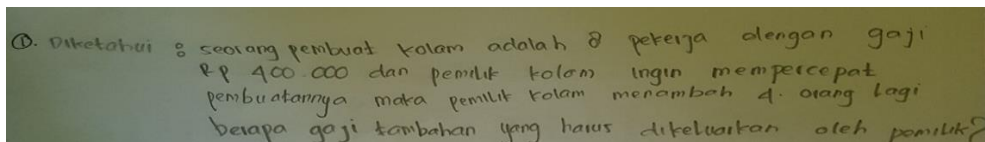 ①. Diketahui : seorang pembuat kolam adalah 8 pekerja dengan gaji
Rp 400.000 dan pemilik kolam ingin mempercepat
pembuatannya maka pemilik kolam menambah 4. orang lagi
berapa gaji tambahan yang harus dikeluarkan oleh pemilik?